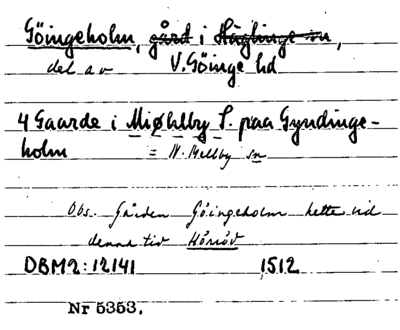 Göingeholm, gård i Häglinge sn,
del av V. Göinge hd
4 Gaarde i Miøhlby S. paa Gyndinge-
holm = N. Mellby sn
Obs. Gården Göingeholm hette vid
denna tid Hörröd
DBM2:12141 1512
Nr 5353.